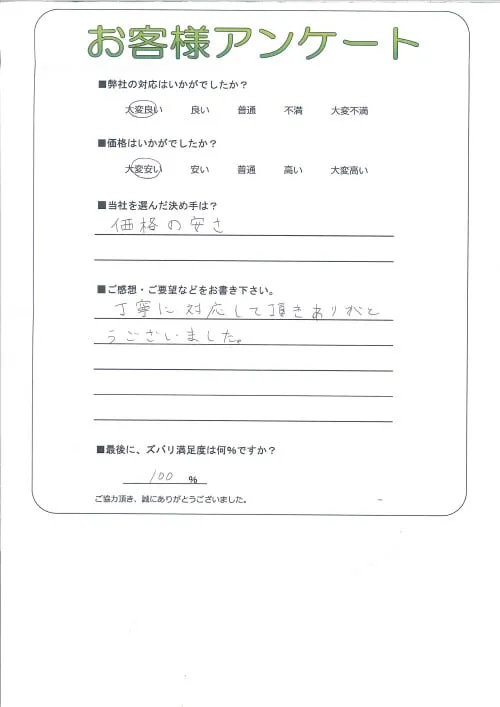 お客様アンケート
■弊社の対応はいかがでしたか？
大変良い 良い 普通 不満 大変不満
■価格はいかがでしたか？
大変安い 安い 普通 高い 大変高い
■当社を選んだ決め手は？
価格の安さ
■ご感想・ご要望などをお書き下さい。
丁寧に対応して頂きありがと
うございました。
■最後に、ズバリ満足度は何％ですか？
100 ％
ご協力頂き、誠にありがとうございました。